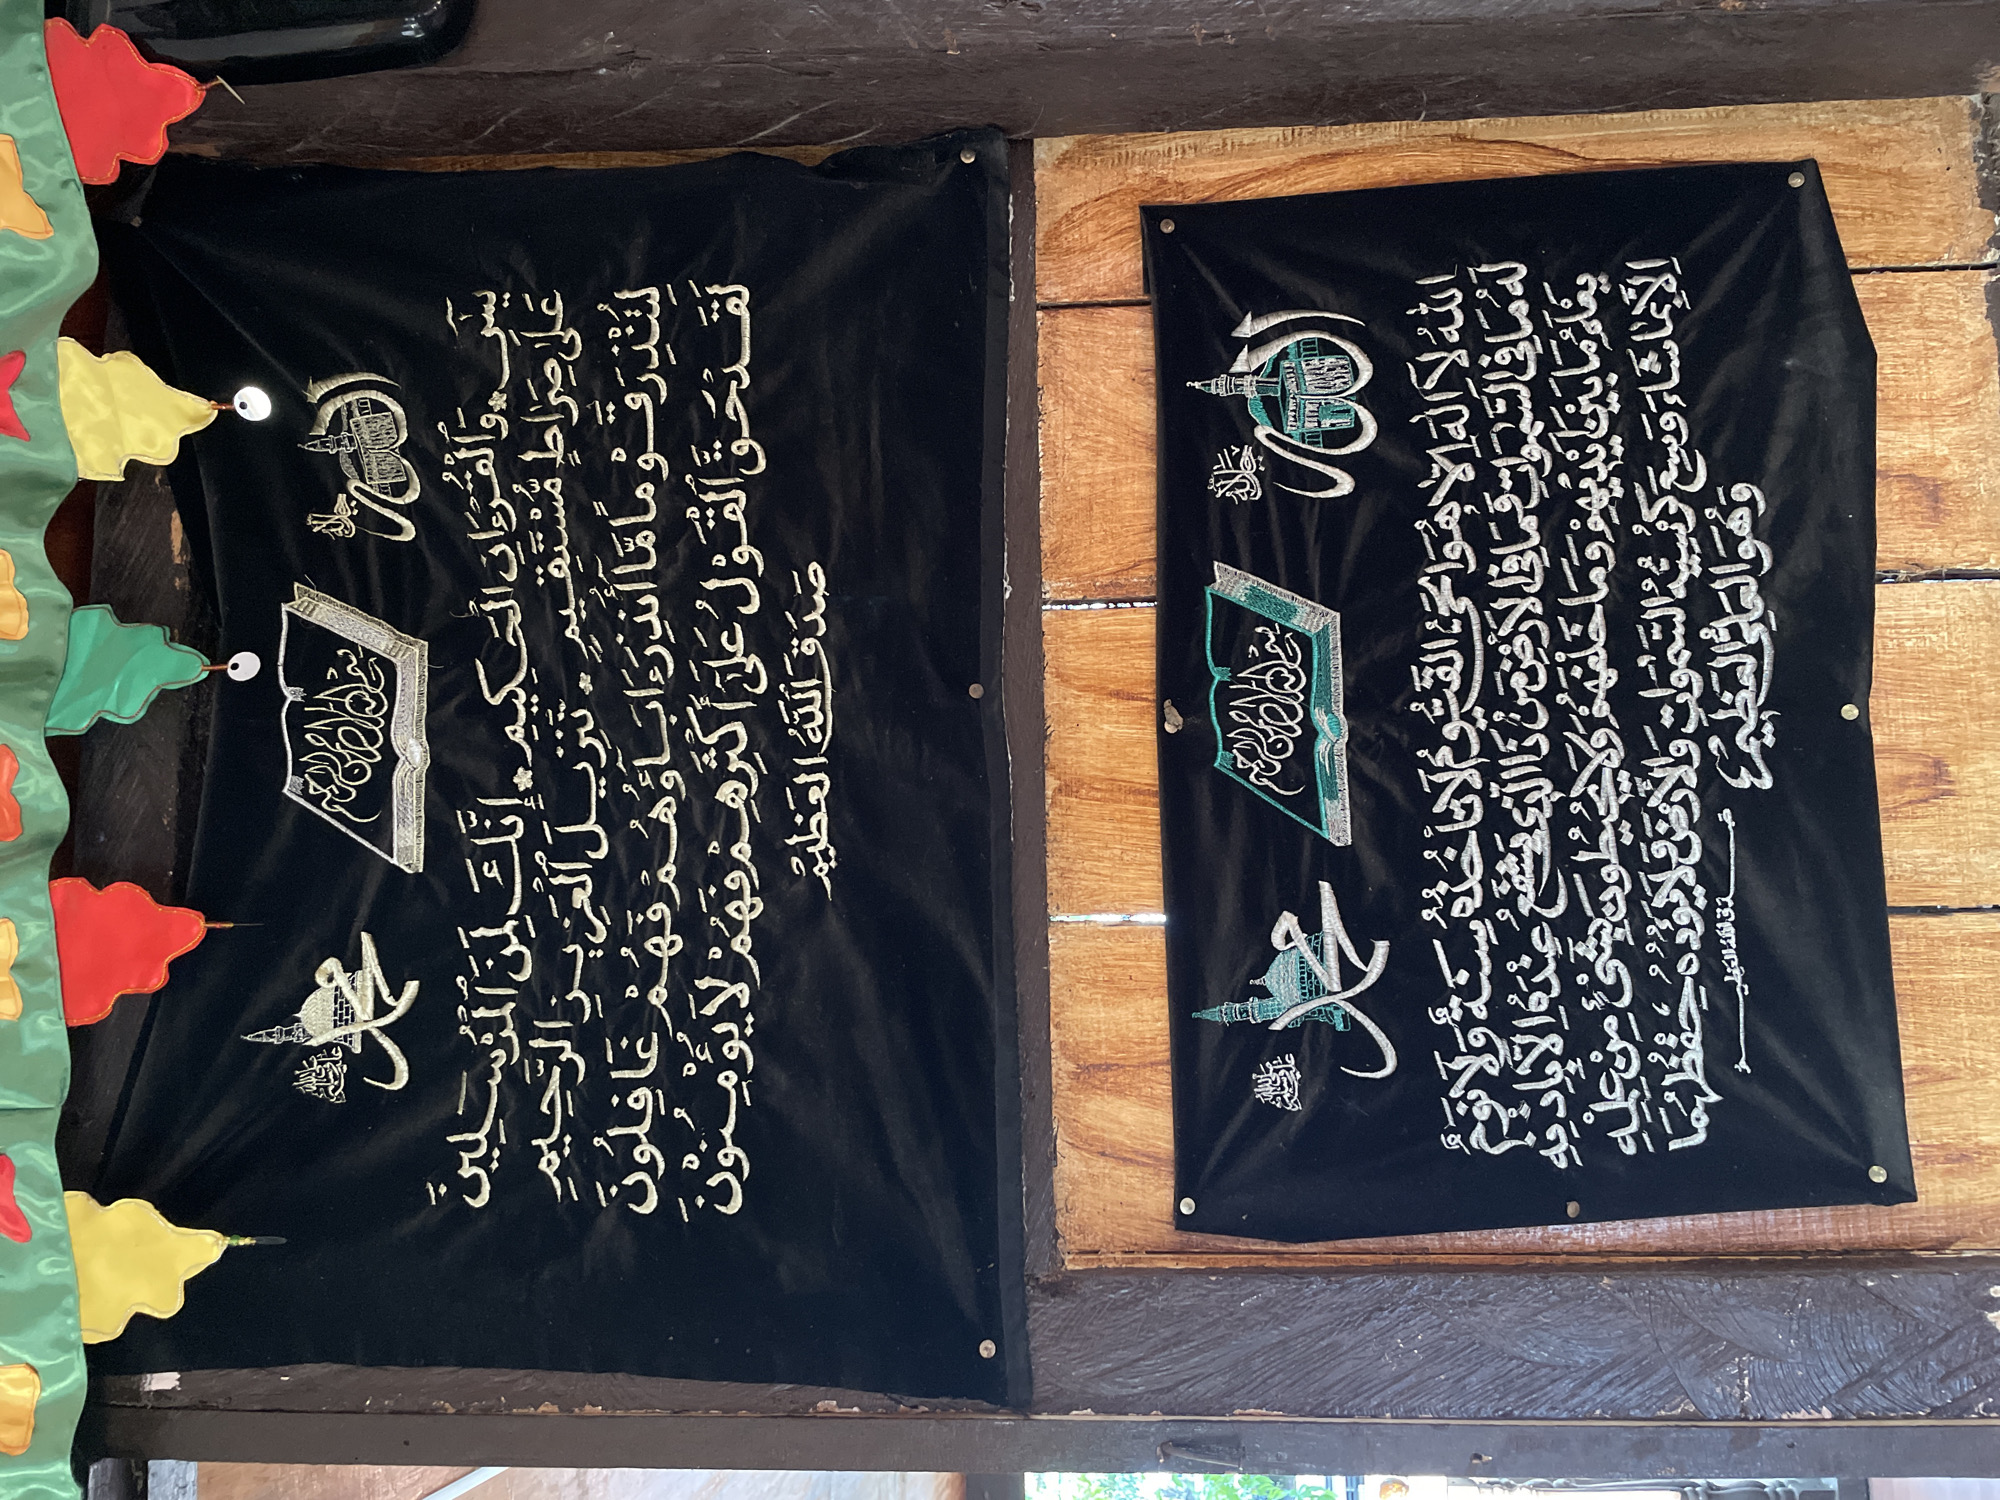 الله
جل جلاله
بسم الله الرحمن الرحيم
محمد
صلى الله عليه وسلم
يسٓ * وَالْقُرْءَانِ الْحَكِيمِ * إِنَّكَ لَمِنَ الْمُرْسَلِينَ
عَلَىٰ صِرَاطٍ مُّسْتَقِيمٍ * تَنزِيلَ الْعَزِيزِ الرَّحِيمِ
لِتُنذِرَ قَوْمًا مَّا أُنذِرَ ءَابَاؤُهُمْ فَهُمْ غَافِلُونَ
لَقَدْ حَقَّ الْقَوْلُ عَلَىٰ أَكْثَرِهِمْ فَهُمْ لَا يُؤْمِنُونَ
صَدَقَ اللهُ الْعَظِيمُ
الله
جل جلاله
بسم الله الرحمن الرحيم
محمد
صلى الله عليه وسلم
اللهُ لَا اِلٰهَ اِلَّا هُوَ الْحَيُّ الْقَيُّومُ لَا تَأْخُذُهُ سِنَةٌ وَلَا نَوْمٌ
لَهُ مَا فِي السَّمٰوَاتِ وَمَا فِي الْاَرْضِ مَنْ ذَا الَّذِي يَشْفَعُ عِنْدَهُ اِلَّا بِاِذْنِهِ
يَعْلَمُ مَا بَيْنَ اَيْدِيهِمْ وَمَا خَلْفَهُمْ وَلَا يُحِيطُونَ بِشَيْءٍ مِنْ عِلْمِهِ
اِلَّا بِمَا شَاءَ وَسِعَ كُرْسِيُّهُ السَّمٰوَاتِ وَالْاَرْضَ وَلَا يَؤُدُهُ حِفْظُهُمَا
وَهُوَ الْعَلِيُّ الْعَظِيمُ
صدق الله العظيم